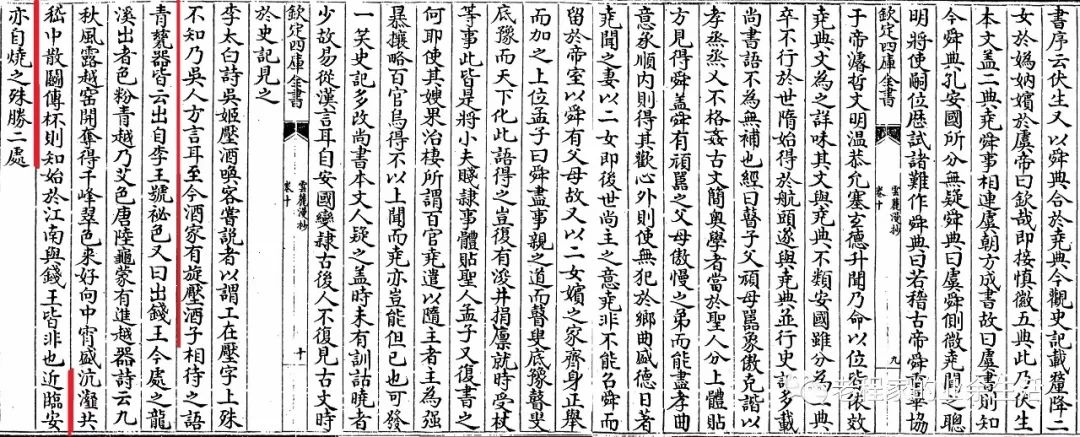 書序云伏生又以舜典合於堯典今觀史記載釐降二
女於媯汭嬪於虞帝曰欽哉即接慎徽五典此乃伏生
本文蓋二典堯舜事相連虞朝方成書故曰虞書則知
今舜典孔安國所分無疑舜典曰虞舜側微堯聞之聰
明將使嗣位歴試諸難作舜典曰若稽古帝舜
欽定四庫全書
雲麓漫抄
卷十
九
于帝濬哲文明温恭允塞玄德升聞乃命以位皆依效
堯典文為之詳味其文與堯典不類安國雖分為二典
卒不行於世隋始得於航頭遂與堯典並行史記多載
尚書語不為無補也經曰瞽子父頑母嚚象傲克諧以
孝烝烝乂不格姦古文簡奧學者當於聖人分上體貼
方見得舜蓋舜有頑嚚之父母傲慢之弟而能盡孝曲
意承順内則得其歡心外則使無犯於鄉曲盛德日著
堯聞之妻以二女即後世尚主之意堯非不能召舜而
留於帝室以舜有父母故又以二女嬪之家齊身正舉
而加之上位孟子曰舜盡事親之道而瞽叟底豫瞽叟
底豫而天下化此語得之豈復有浚井捐廪就時受杖
等事此皆是將小夫賤隸事體貼聖人孟子又復書之
何耶使其嫂果治棲所謂百官堯遣以隨主者王為强
暴攘略百官烏得不以上聞而堯亦豈能但已也可發
一笑史記多改尚書本文人疑之蓋時未有訓詁曉者
欽定四庫全書
雲麓漫抄
卷十
十
少故易從漢言耳自安國變隸古後人不復見古文時
於史記見之
李太白詩吳姬壓酒喚客嘗說者以謂工在壓字上殊
不知乃吳人方言耳至今酒家有旋壓酒子相待之語
青甆器皆云出自李王號祕色又曰出錢王今處之龍
溪出者色粉青越乃艾色唐陸龜蒙有進越器詩云九
秋風露越窑開奪得千峰翠色来好向中宵盛沆瀣共
嵇中散鬭傳杯則知始於江南與錢王皆非也近臨安
亦自燒之殊勝二處